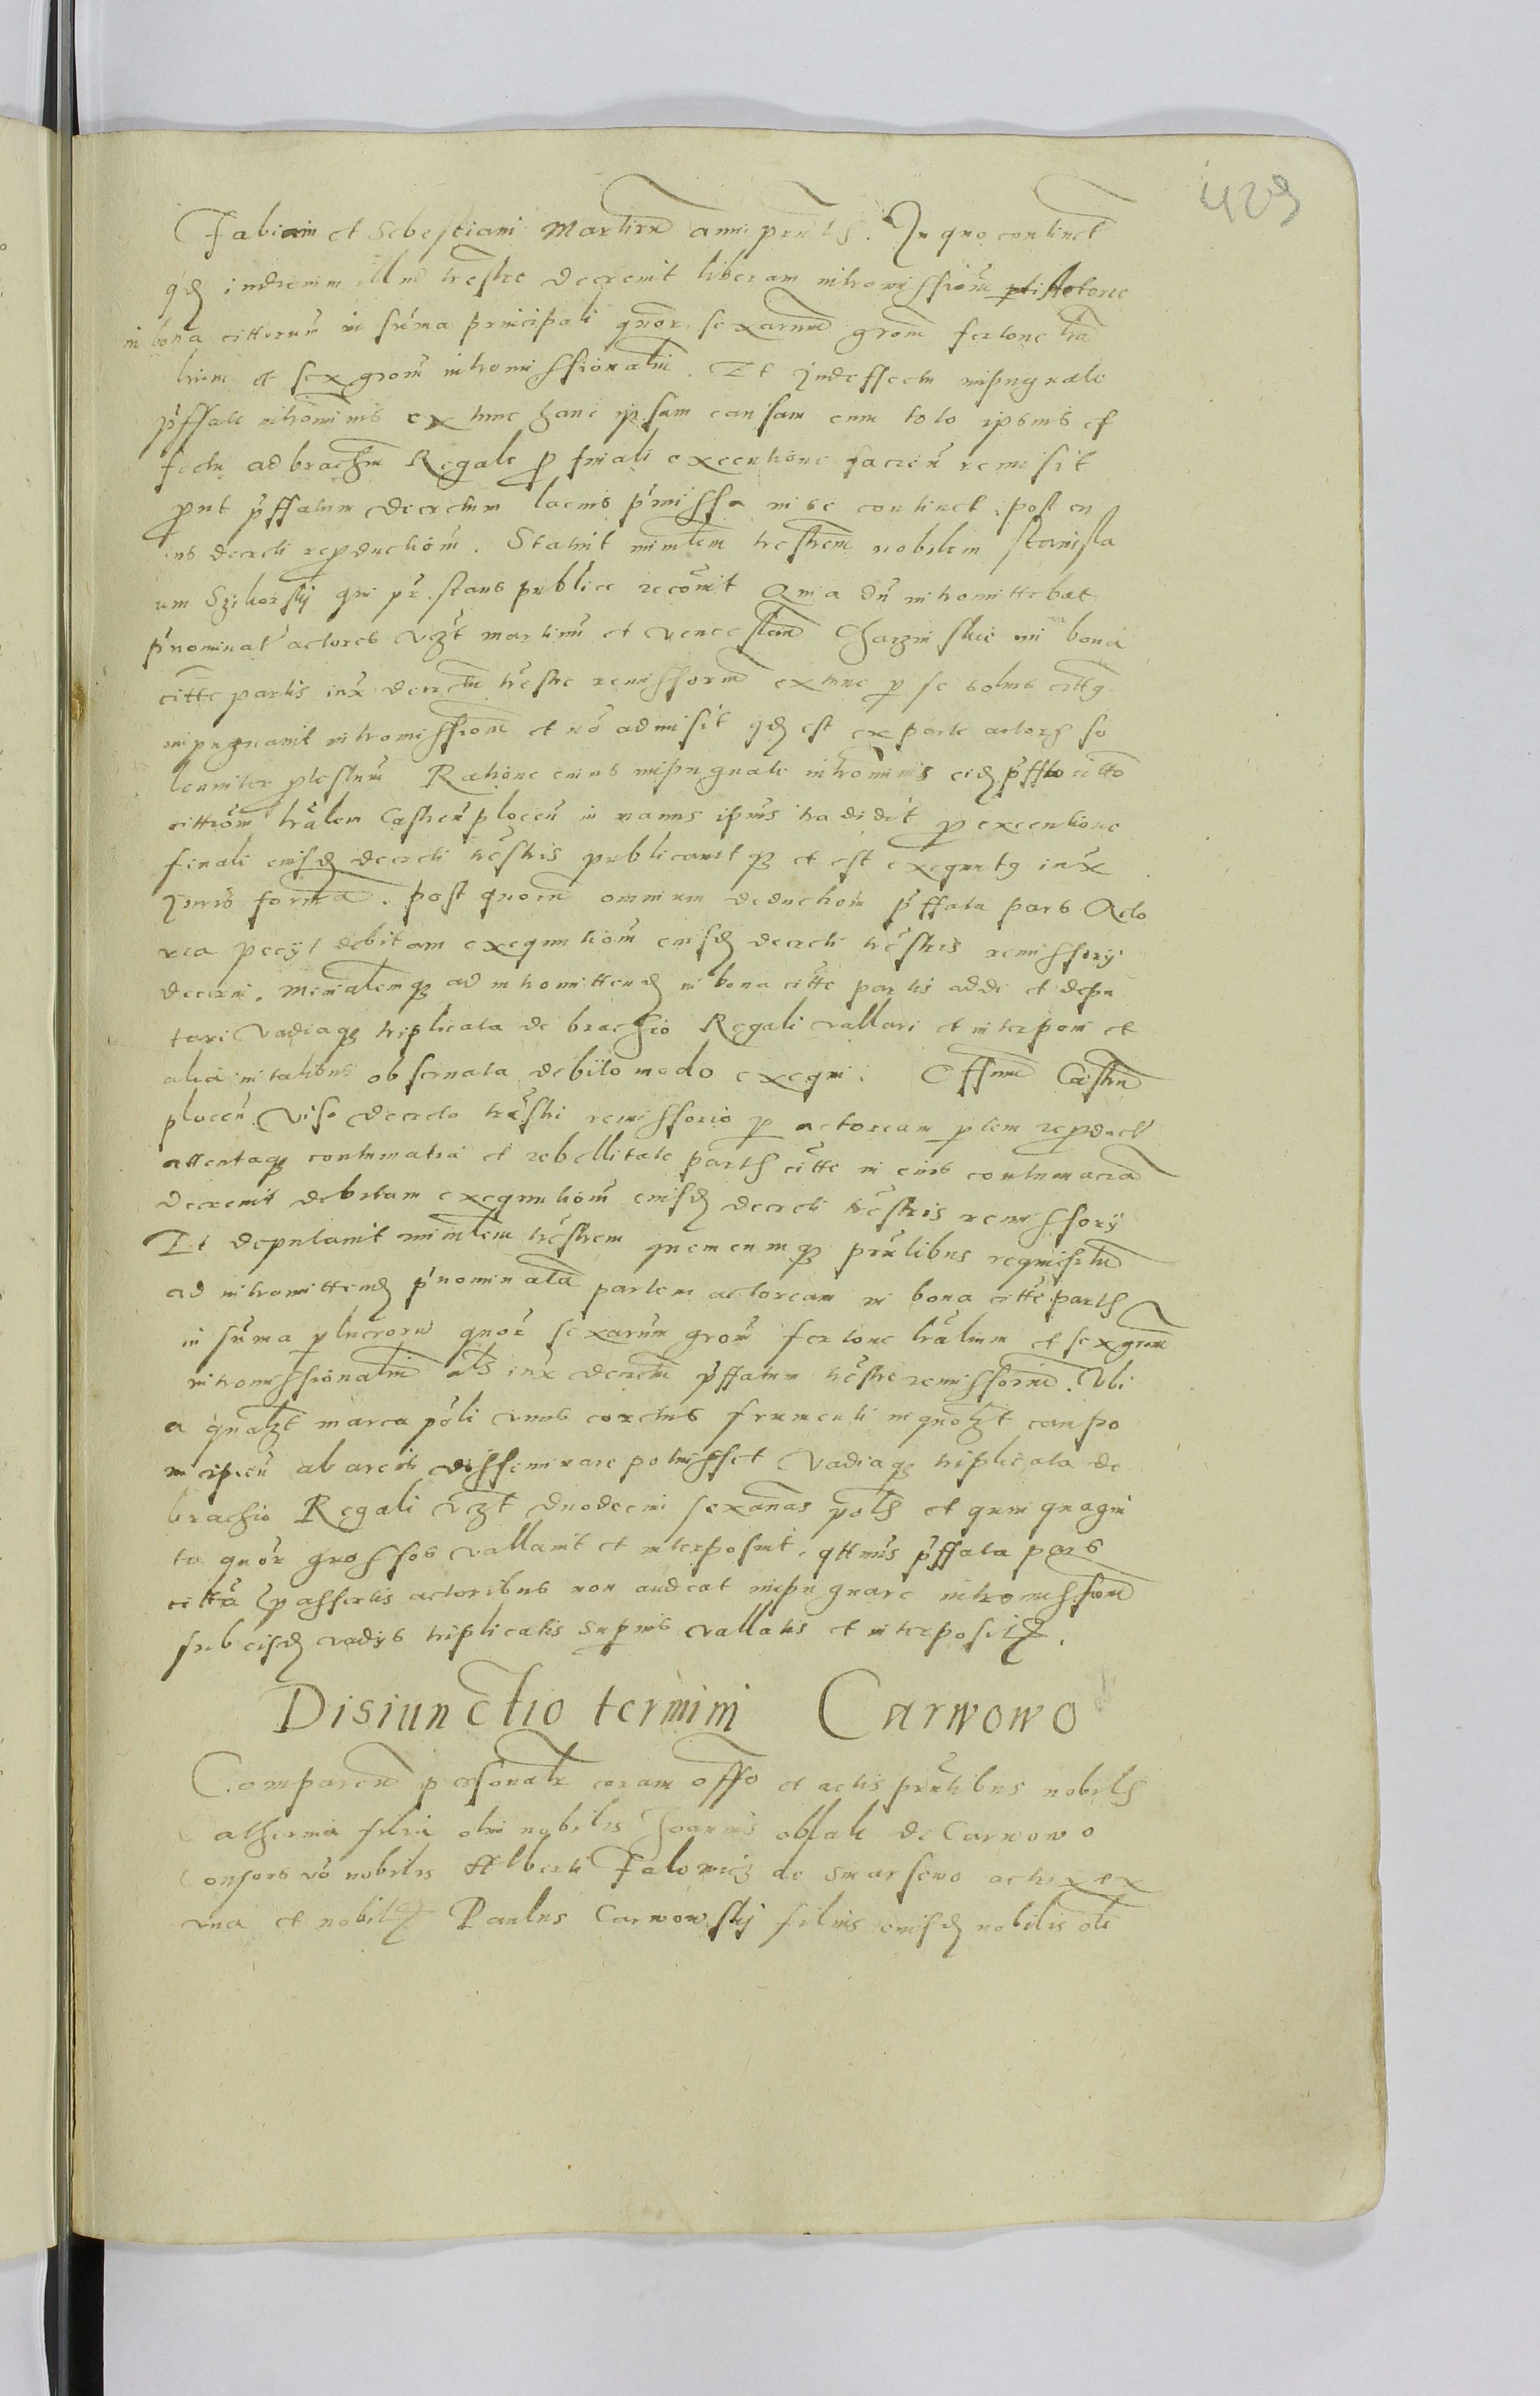 429
Fabiani et Sebestiani Martirũ anni prntis. In quo continet
qd iudicium illud trestre decrevit liberam intromissionẽ pti Actoree
in bona cittorum in suma principali quor sexarum grom fertone tra
lium et sex grom intromissionalium. Et in deffectu inpugnate
pffate intromĩnis ex tunc hanc ipsam causam cum toto ipsius ef
fectu ad brachiũ Regale p finali executione facien remisit
put pffatum decretum lacius pmissa in se continet. post cu
ius decreti reproductionẽ. Statuit minlem trestrem nobilem Stanisla
um Szikorskij qui pr. stans publice recovit Quia dũ intromittebat
pnominat actores vczt martinũ et venceslaum Charzinskie in bona
citte partis iux decretũ trestre remissoriũ extunc p se solus citto
inpugnavit intromissionẽ et nõ admisit qd est ex parte actoris so
lenniter ptestum Ratione cuius inpugnate intromĩnis eid pffto citto
cittiõm trãlem Castreñ plocen in manus ipius tradidit p executione
finali eiusd decreti trestris publicavitq et est exequutg iux
Juris formã. post quorũ omnium deductionẽ pffata pars Acto
rea pecyt debitam exequutionẽ eiusd decreti trestris remissorij
decerni. Minĩalemq ad intromittend in bona citte partis addi et depu
tari vadiaq triplicata de brachio Regali vallari et interponi et
alia in talibus observata debito modo exequi. Offiũ Castrñ
plocen viso decreto trestri remissorio p actoream ptem reproduct
attentaq contumatia et rebellitate partis citte in eius contumaciã
decrevit debitam exequutionẽ eiusd decreti trestris remissorij
Et deputavit minĩlem trestrem quemcumq pntibus requisitũ
ad intromittend pnominatã partem actoream in bona citte partis
in suma plucrorũ quor sexarum grom fertone trãlium et sex grom
intromissionaliũ als iux decretũ pffatum trestre remissoriũ. Ubi
a qualzt marca poli unus corctus frumenti in quolzt campo
incipien ab areis disseminare potuisset vadiaq triplicata de
brachio Regali vczt duodecim sexanas polis et quinquagin
ta quor grossos vallavit et interposuit. qttnus pffata pars
citta passertis actoribus non audeat inpugnare intromissionẽ
sub eisd vadijs triplicatis superius vallatis et interpositis.
Disiunctio termini Carwowo
Comparen psonalr coram offo et actis prntibus nobilis
Catherina filia olim nobilis Joannis oblate de Carwowo
Consors vo nobilis Alberti Falowicz de Smarsewo actrix ex
una et nobilis Paulus Carwowskij filius eiusd nobilis oli